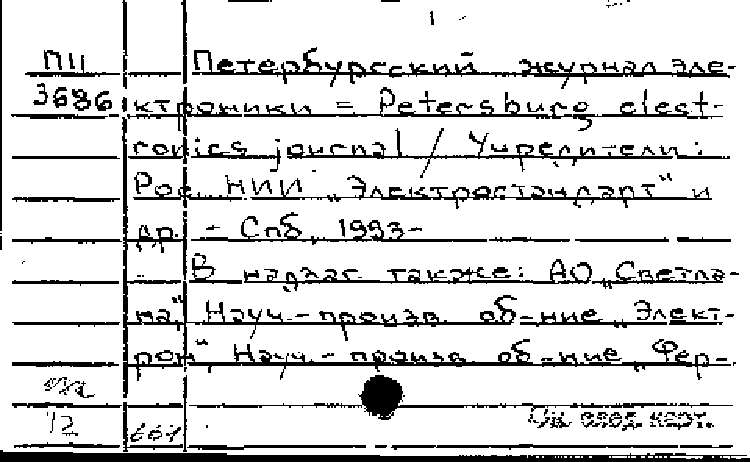 П11 Петербургский журнал эле-
3686 ктроники = Petersburg elect-
ronics journal / Учредители:
Рос. НИИ "Электростандарт" и
др. - Спб, 1993-
В надзаг также: АО "Светла-
на", Науч.-произв. об-ние "Элект-
рон", Науч.-произв. об-ние "Фер-
12 661 См. след. карт.